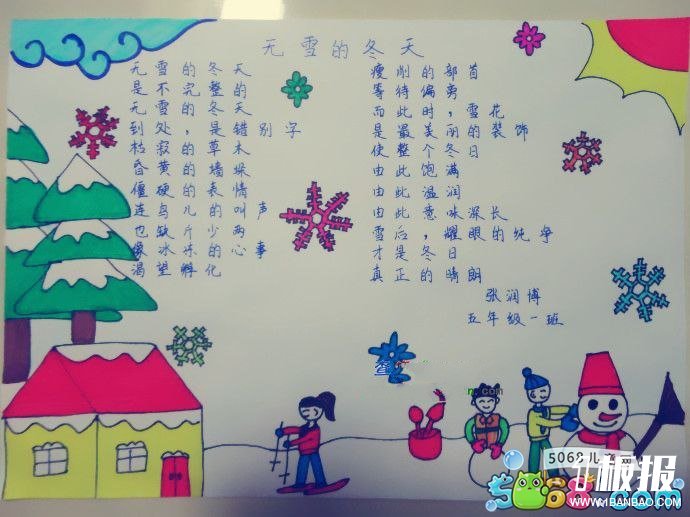 无雪的冬天
无雪的冬天
是不完整的
无雪的冬天
到处，是错别字
枯寂的草木
昏黄的墙垛
僵硬的表情
连鸟儿的叫声
也缺斤少两
像冰冻的心事
渴望孵化
瘦削的部首
等待偏旁
而此时，雪花
是最美丽的装饰
使整个冬日
由此饱满
由此温润
由此意味深长
雪后，耀眼的纯净
才是冬日
真正的晴朗
张润博
五年级一班
.com
5068儿童网
板报
WWW.41BANBAO.COM
5068.com